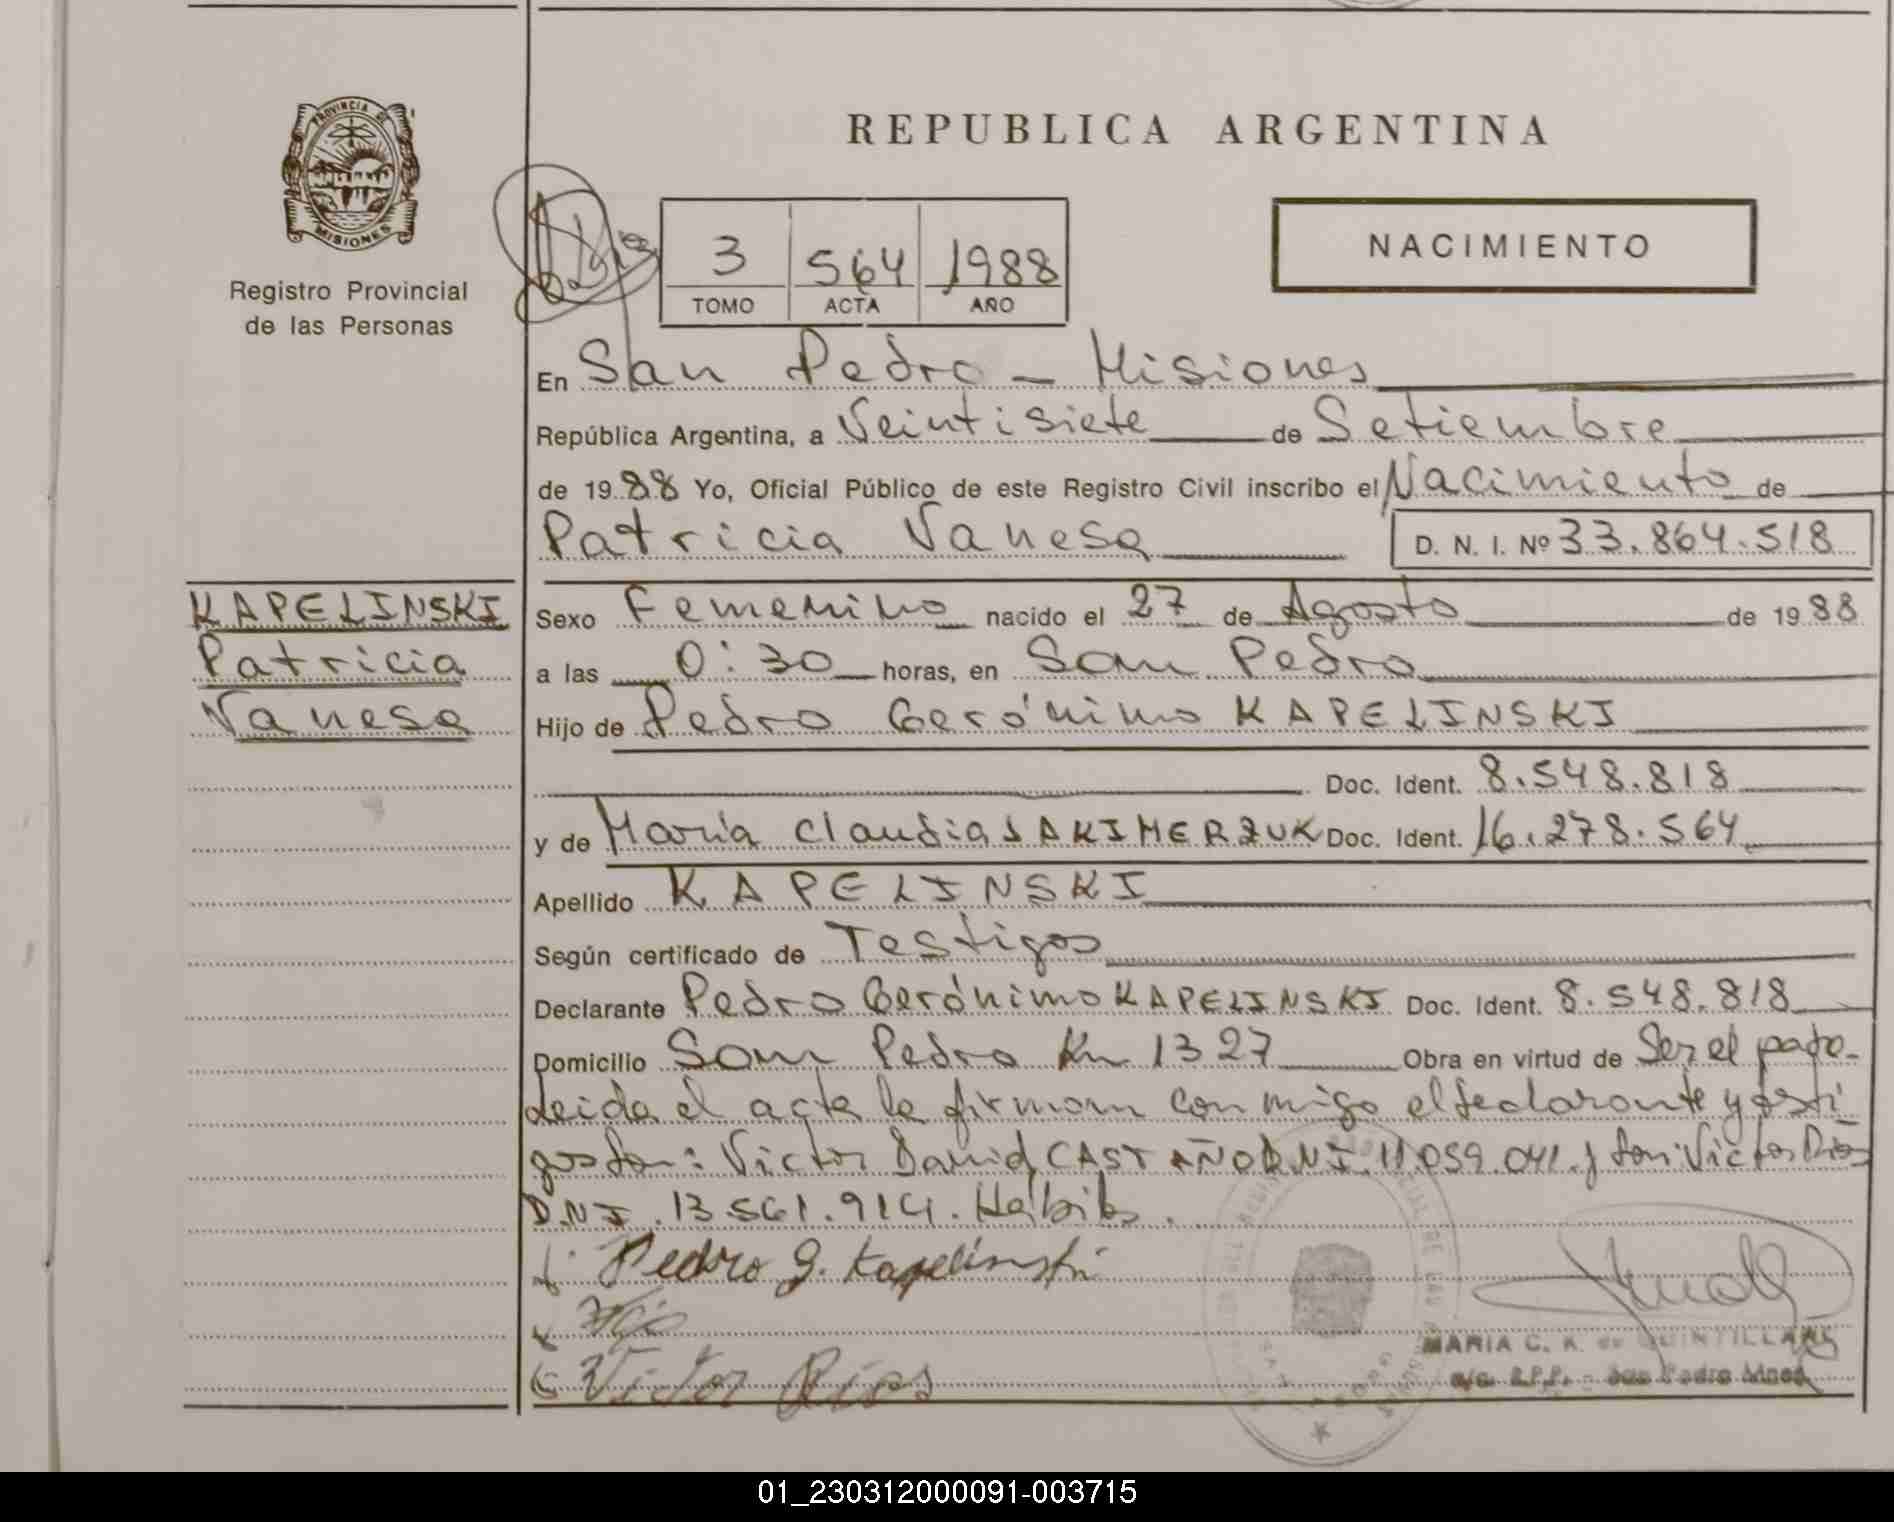 REPUBLICA ARGENTINA
PROVINCIA DE
MISIONES
Registro Provincial
de las Personas
3 564 1988
TOMO ACTA AÑO
NACIMIENTO
En San Pedro - Misiones
República Argentina, a Veintisiete de Setiembre
de 1988 Yo, Oficial Público de este Registro Civil inscribo el Nacimiento de
Patricia Vanesa D. N. I. Nº 33.864.518
KAPELINSKI
Patricia
Vanesa
Sexo Femenino nacido el 27 de Agosto de 1988
a las 0:30 horas, en San Pedro
Hijo de Pedro Gerónimo KAPELINSKI
Doc. Ident. 8.548.818
y de María Claudia Doc. Ident. 16.278.564
Apellido KAPELINSKI
Según certificado de Testigos
Declarante Pedro Gerónimo KAPELINSKI Doc. Ident. 8.548.818
Domicilio San Pedro Km 1327 Obra en virtud de Ser el padre
Leida el acta la firman conmigo el declarante y testi
gos Son: Victor David CASTAÑO D.N.I. 11.059.041. y Son: Victor Rios
D.N.I. 13.561.914. Habiles.
Pedro G. Kapelinski
Victor Rios
MARIA C. A. de QUINTILLAN
a/c. R.P.P. - San Pedro Mnes.
01_230312000091-003715